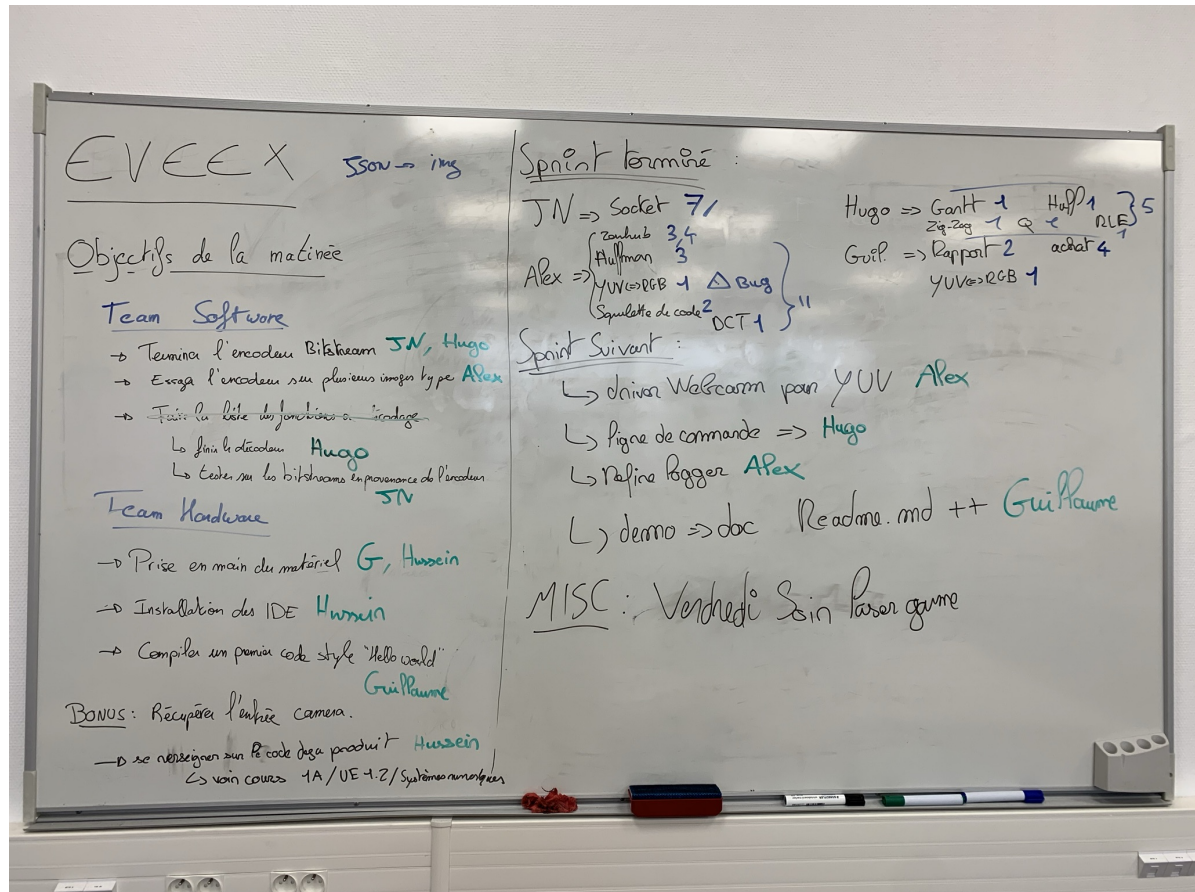 EVEEX
JSON → img
Objectifs de la matinée
Team Software
→ Terminer l'encodeur Bitstream JN, Hugo
→ Essayer l'encodeur sur plusieurs images type Alex
→ Faire la liste des fonctions de décodage
↳ finir le décodeur Hugo
↳ tester sur les bitstreams en provenance de l'encodeur
JN
Team Hardware
→ Prise en main du matériel G, Hussein
→ Installation des IDE Hussein
→ Compiler un premier code style "Hello world"
Guillaume
BONUS: Récupérer l'entrée camera.
→ se renseigner sur le code deja produit Hussein
↳ voir cours 1A/UE 1.2/Systèmes numériques
Sprint terminé :
JN => Socket 7/
3,4
Huffman 3
Alex =>
YUV<=>RGB 1 ⚠ Bug
Squelette de code 2
DCT 1
11
Hugo => Gantt 1 Huff 1
Zig-Zag 1 Q 1 RLE 1
5
Guil. => Rapport 2 achat 4
YUV<=>RGB 1
Sprint Suivant :
↳ driver Webcam pour YUV Alex
↳ ligne de commande => Hugo
↳ Define logger Alex
↳ demo => doc Readme.md ++ Guillaume
MISC : Vendredi Soir laser game